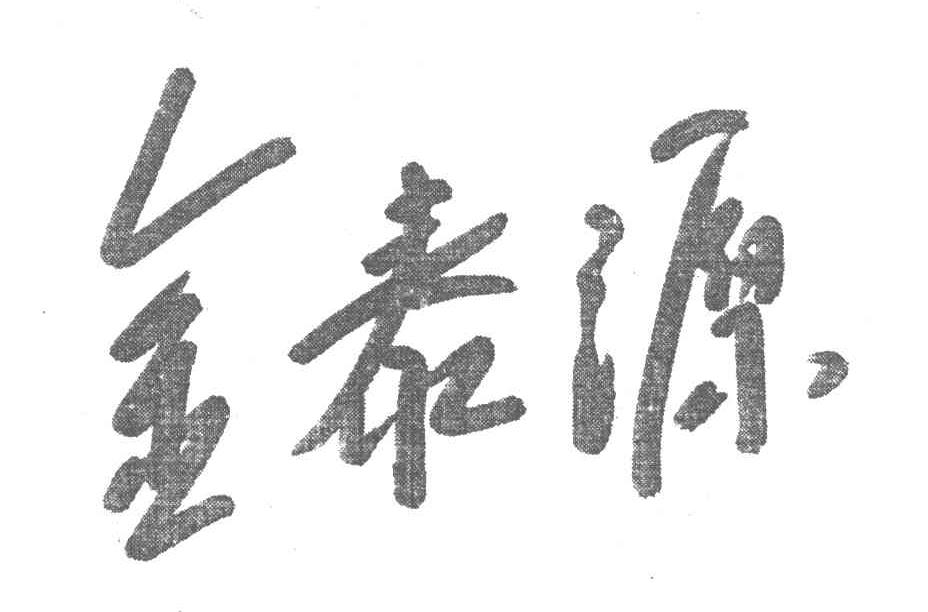 金泰源